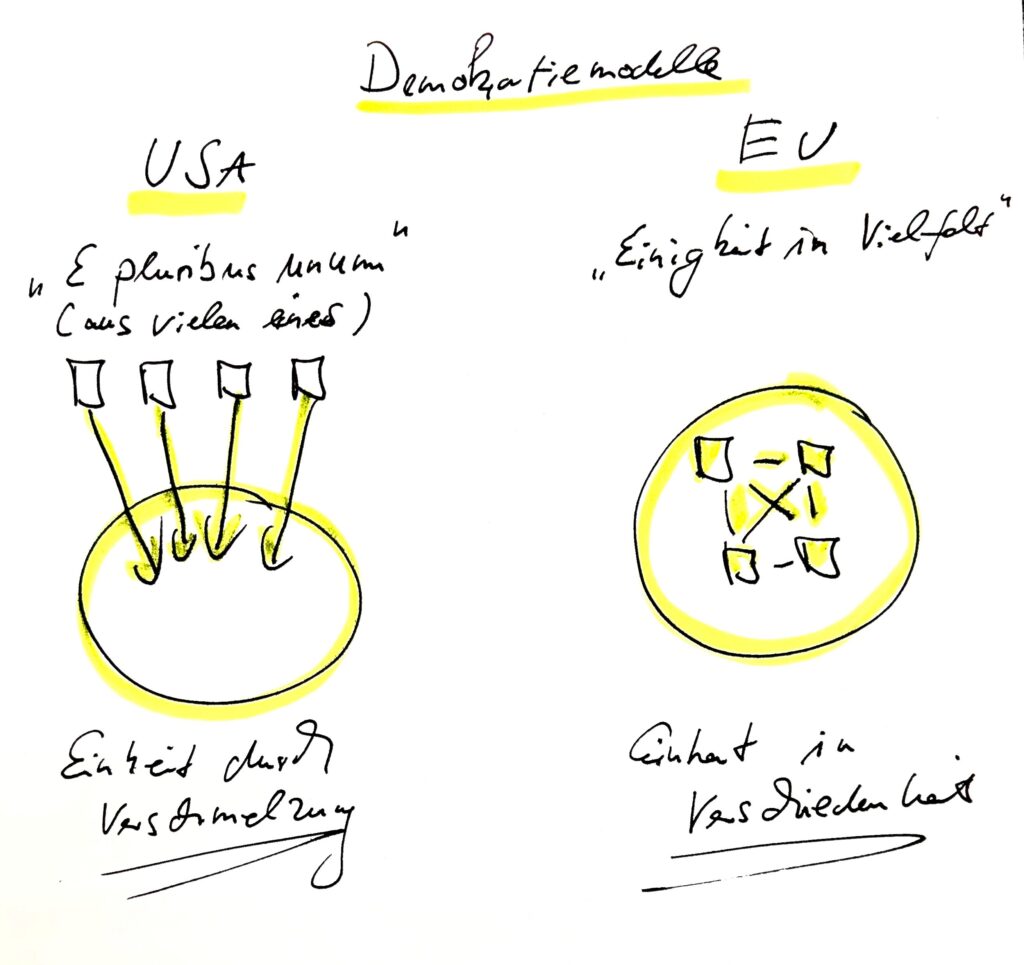 Demokratiemodelle
USA
„E pluribus unum"
(aus vielen eines)
Einheit durch
Verschmelzung
EU
„Einigkeit in Vielfalt"
Einheit in
Verschiedenheit